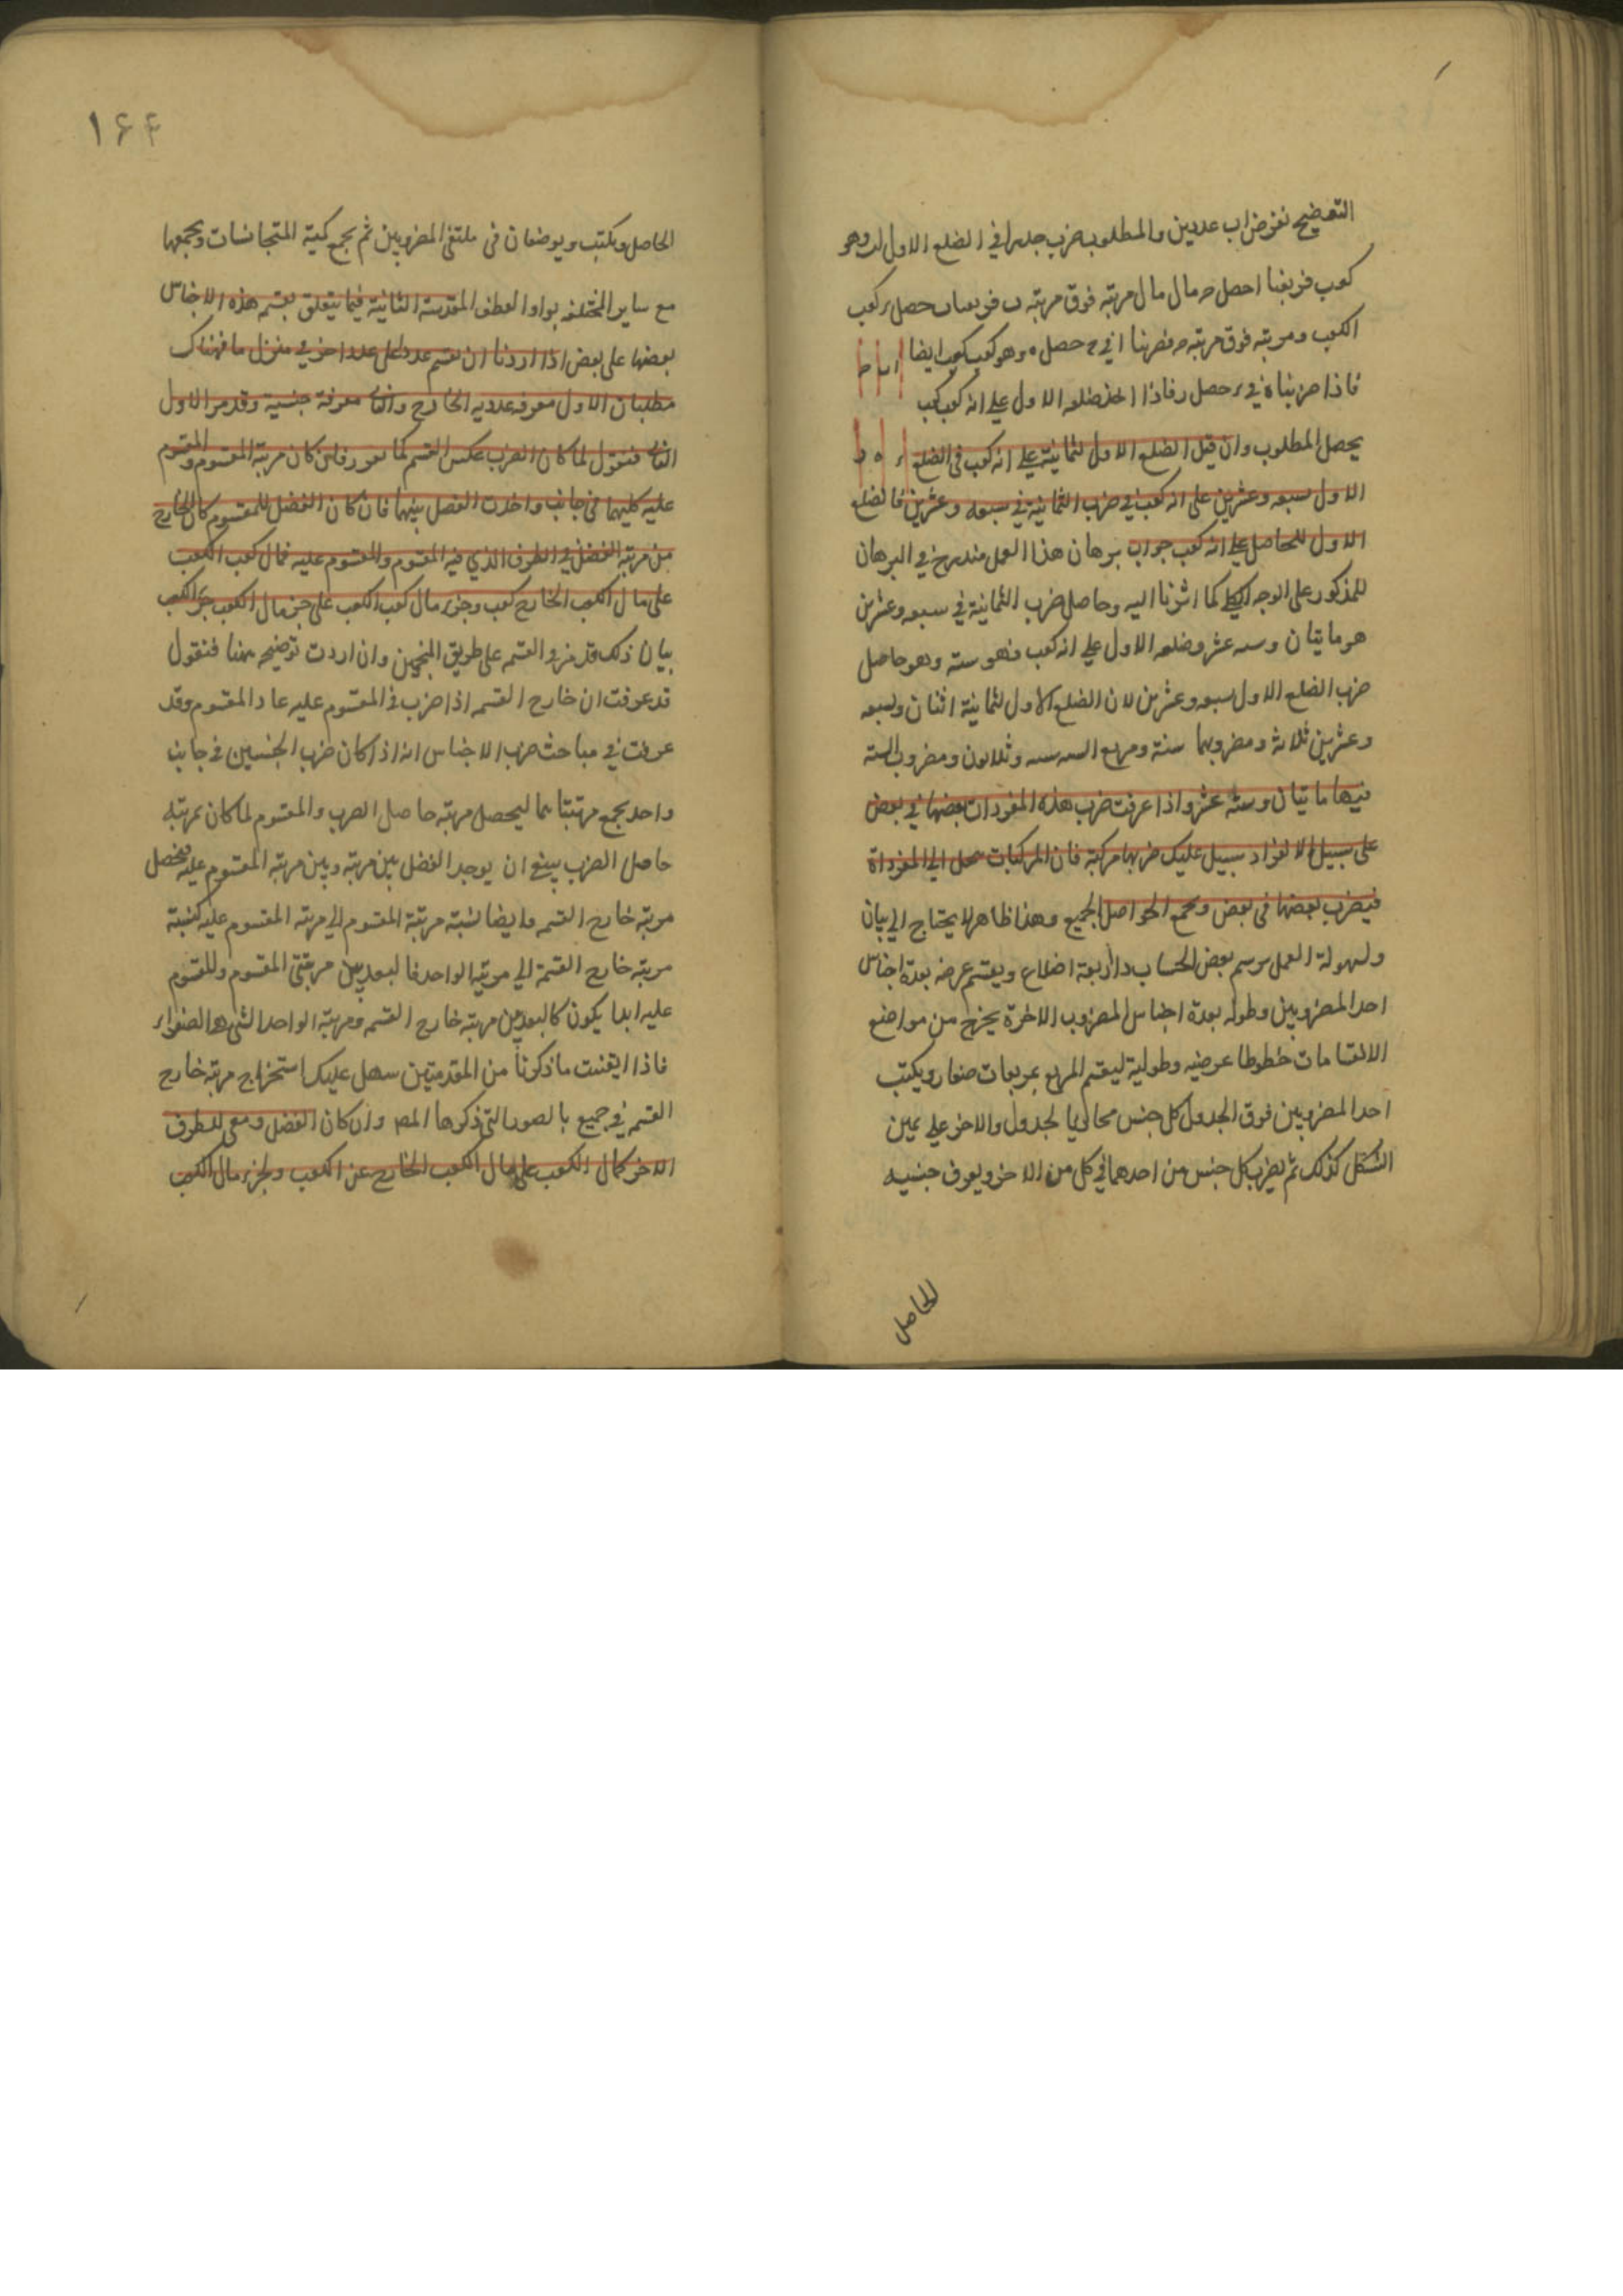 التوضيح نفرض اب عددين والمطلوب ضرب جذر ا في الضلع الاول لب وهو
كعب فربعنا ا حصل ح مال مال مرتبه فوق مرتبه ب فربعنا ب حصل ر كعب
الكعب ومرتبه فوق مرتبه ح فضربنا ا في ح حصل ه وهو كعب كعب ايضا ا ب ط
فاذا ضربناه في ر حصل فاذا اخذ ضلعه الاول على انه كعب كعب
يحصل المطلوب وان قيل الضلع الاول لثمانية على انه كعب في الضلع
الاول لسبعه وعشرين على انه كعب في ضرب الثمانية في سبعه وعشرين فالضلع
الاول للحاصل على انه كعب جواب برهان هذا العمل مندرج في البرهان
المذكور على الوجه الكلي كما اشرنا اليه وحاصل ضرب الثمانية في سبعه وعشرين
هو مايتان وسه عشر وضلعه الاول على انه كعب فهو سته وهو حاصل
ضرب الضلع الاول لسبعه وعشرين لان الضلع الاول لثمانية اثنان ولسبعه
وعشرين ثلاثة ومضروبهما ستة ومربع السه سه وثلاثون ومضروب السته
فيها مايتان وستة عشر واذا عرفت ضرب هذه المفردات بعضها في بعض
على سبيل الانفراد سبيل عليك ضربها مركبة فان المركبات تنحل الى المفرداة
فيضرب بعضها في بعض ويجمع الحواصل الجميع وهذا ظاهر لا يحتاج الى بيان
ولسهولة العمل يرسم بعض الحساب ذا اربعة اضلاع ويقسم عرضه بعدة اجناس
احد المضروبين وطوله بعدة اجناس المضروب الاخرة يخرج من مواضع
الانقسامات خطوطا عرضيه وطولية ليقسم المربع بمربعات صغار ويكتب
احد المضروبين فوق الجدول كل جنس محاذيا لجدول والاخر على يمين
الشكل كذلك ثم يضرب كل جنس من احدهما في كل من الاخر ويعرف جنسيه
الحاصل
۱۶۴
الحاصل ويكتب ويوضعان في ملتقى المضروبين ثم يجمع كمية المتجانسات ويجمعها
مع ساير المختلفه بواو العطف المقدمة الثانية فيما يتعلق بقسم هذه الاجناس
بعضها على بعض اذا اردنا ان نقسم عددا على عدد اخر في منزل ما فهناك
مطلبان الاول معرفه عدديه الخارج والثاني معرفة جنسية وقد مر الاول
الثاني فنقول لما كان الضرب عكس القسم كما فان كان مرتبة المقسوم والمقسوم
عليه كليهما في جانب واخذت الفضل بينهما فان كان الفضل للمقسوم كان الخارج
من مرتبه الفضل في الطرف الذي فيه المقسوم والمقسوم عليه فمال كعب الكعب
على مال الكعب الخارج كعب وجزء مال كعب الكعب على جزء مال الكعب جزء الكعب
بيان ذلك قد مر في القسم على طريق المنجمين وان اردت توضيحه ههنا فنقول
قد عرفت ان خارج القسمه اذا ضرب في المقسوم عليه عاد المقسوم وقد
عرفت في مباحث ضرب الاجناس انه اذا كان ضرب الجنسين في جانب
واحد يجمع مرتبتاهما ليحصل مرتبه حاصل الضرب والمقسوم لما كان بمرتبة
حاصل الضرب ينبغي ان يوجد الفضل بين مرتبه وبين مرتبه المقسوم عليه فيحصل
مرتبه خارج القسم وايضا نسبة مرتبة المقسوم الى مرتبه المقسوم عليه كنسبة
مرتبه خارج القسمة الى مرتبه الواحد فالبعد بين مرتبتي المقسوم والمقسوم
عليه ابدا يكون كالبعد بين مرتبه خارج القسمه ومرتبة الواحد التي هي الصفر
فاذا ايقنت ما ذكرنا من المقدمتين سهل عليك استخراج مرتبه خارج
القسم في جميع بالصور التي ذكرها المص وان كان الفضل للطرف
الاخر كمال الكعب على مال الكعب الخارج عن الكعب وجزء مال الكعب